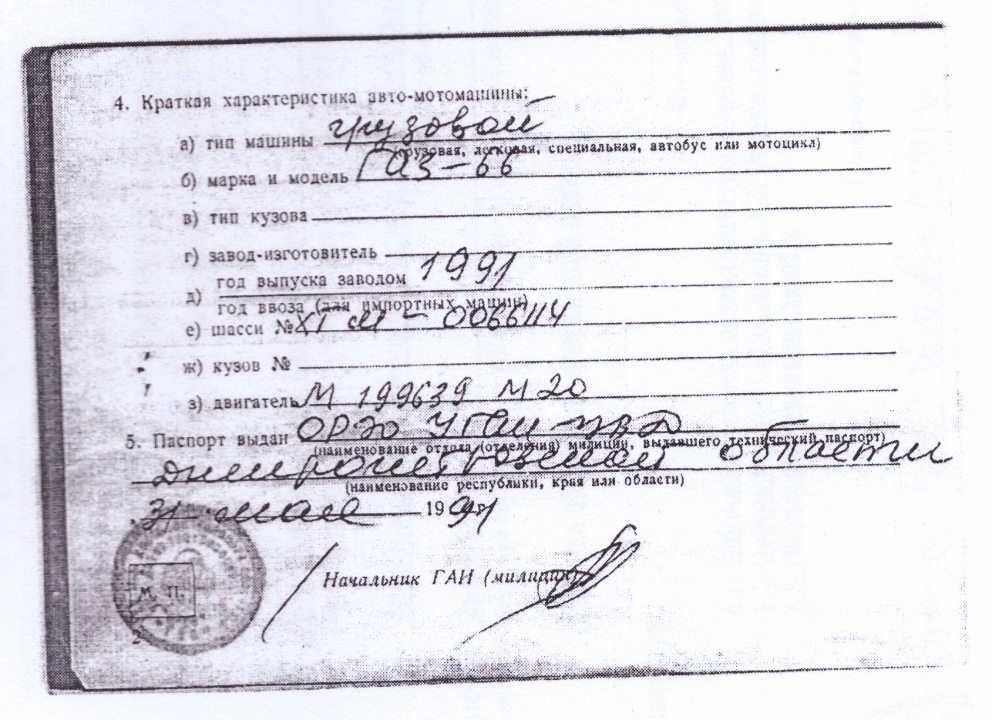 4. Краткая характеристика авто-мотомашины:
а) тип машины грузовой
(грузовая, легковая, специальная, автобус или мотоцикл)
б) марка и модель ГАЗ-66
в) тип кузова
г) завод-изготовитель
год выпуска заводом 1991
д)
год ввоза (для импортных машин)
е) шасси № XT м - 0066114
ж) кузов №
з) двигатель М 199639 М20
5. Паспорт выдан ОРЭО УГАИ УВД
(наименование отдела (отделения) милиции, выдавшего технический паспорт)
Днепропетровской области
(наименование республики, края или области)
31 мая 1991
Начальник ГАИ (милиции)
М. П.
2